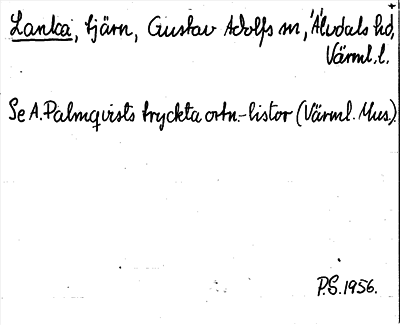 Lanka, tjärn, Gustav Adolfs sn, Älvdals hd,
Värml. l.
Se A. Palmqvists tryckta ortn.-listor (Värml. Mus.).
P.G. 1956.